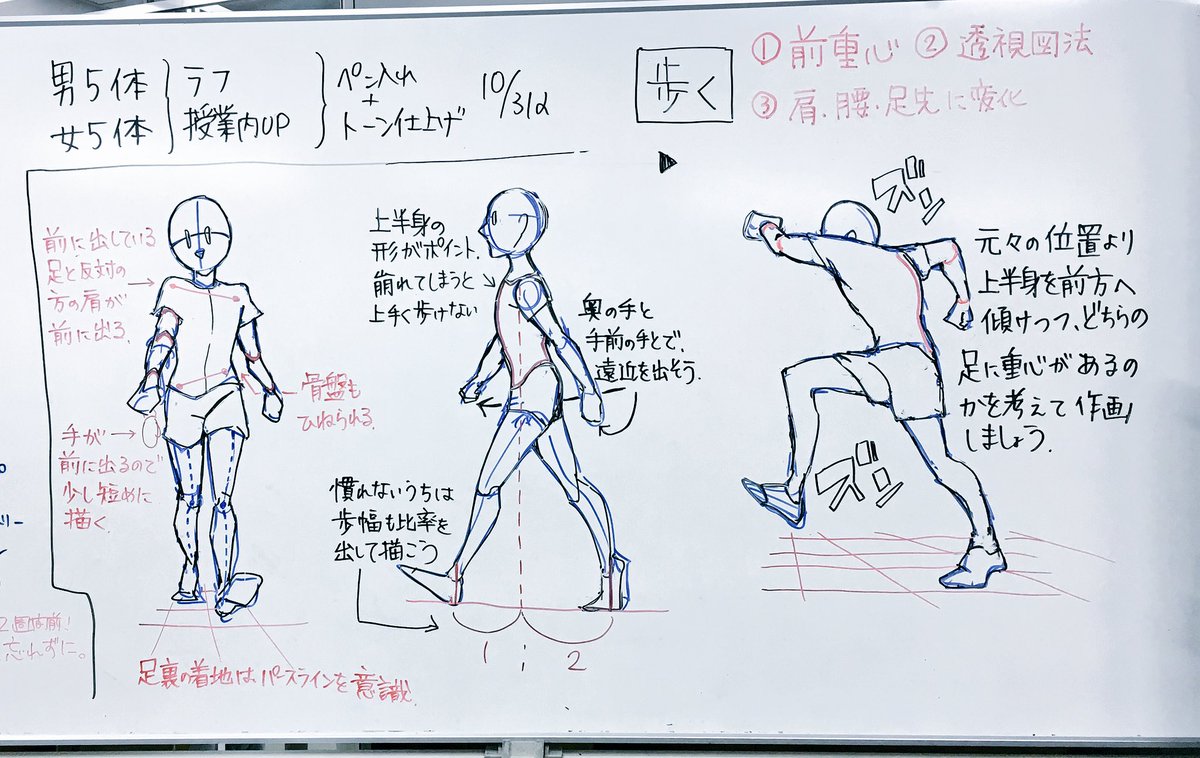 男5体 ラフ ペン入れ 10/31α
+
女5体 授業内UP トーン仕上げ
歩く
① 前重心 ② 透視図法
③ 肩・腰・足先に変化
前に出している
足と反対の
方の肩が
前に出る.
手が→
前に出るので
少し短めに
描く.
骨盤も
ひねられる.
足裏の着地はパースラインを意識.
上半身の
形がポイント.
崩れてしまうと
上手く歩けない
奥の手と
手前の手とで、
遠近を出そう.
慣れないうちは
歩幅も比率を
出して描こう
1 2
ズン
元々の位置より
上半身を前方へ
傾けつつ、どちらの
足に重心があるの
かを考えて作画
しましょう.
ズン
忘れずに。